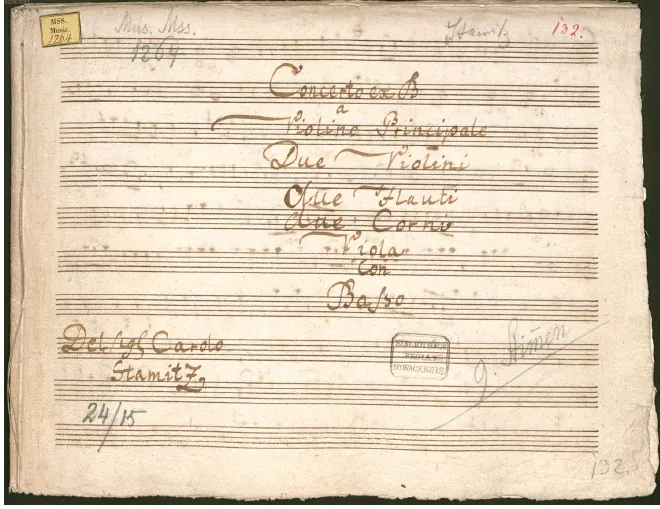 MSS.
Music.
1264
Mus. Mss.
1264
Stamitz
132.
Concerto ex B
a
Violino Principale
Due Violini
Due Flauti
due Corni
Viola
Con
Basso
Del Sigl Carolo
Stamitz
24/15
BIBLIOTHECA
REGIA
MONACENSIS
9. Stimen
132.